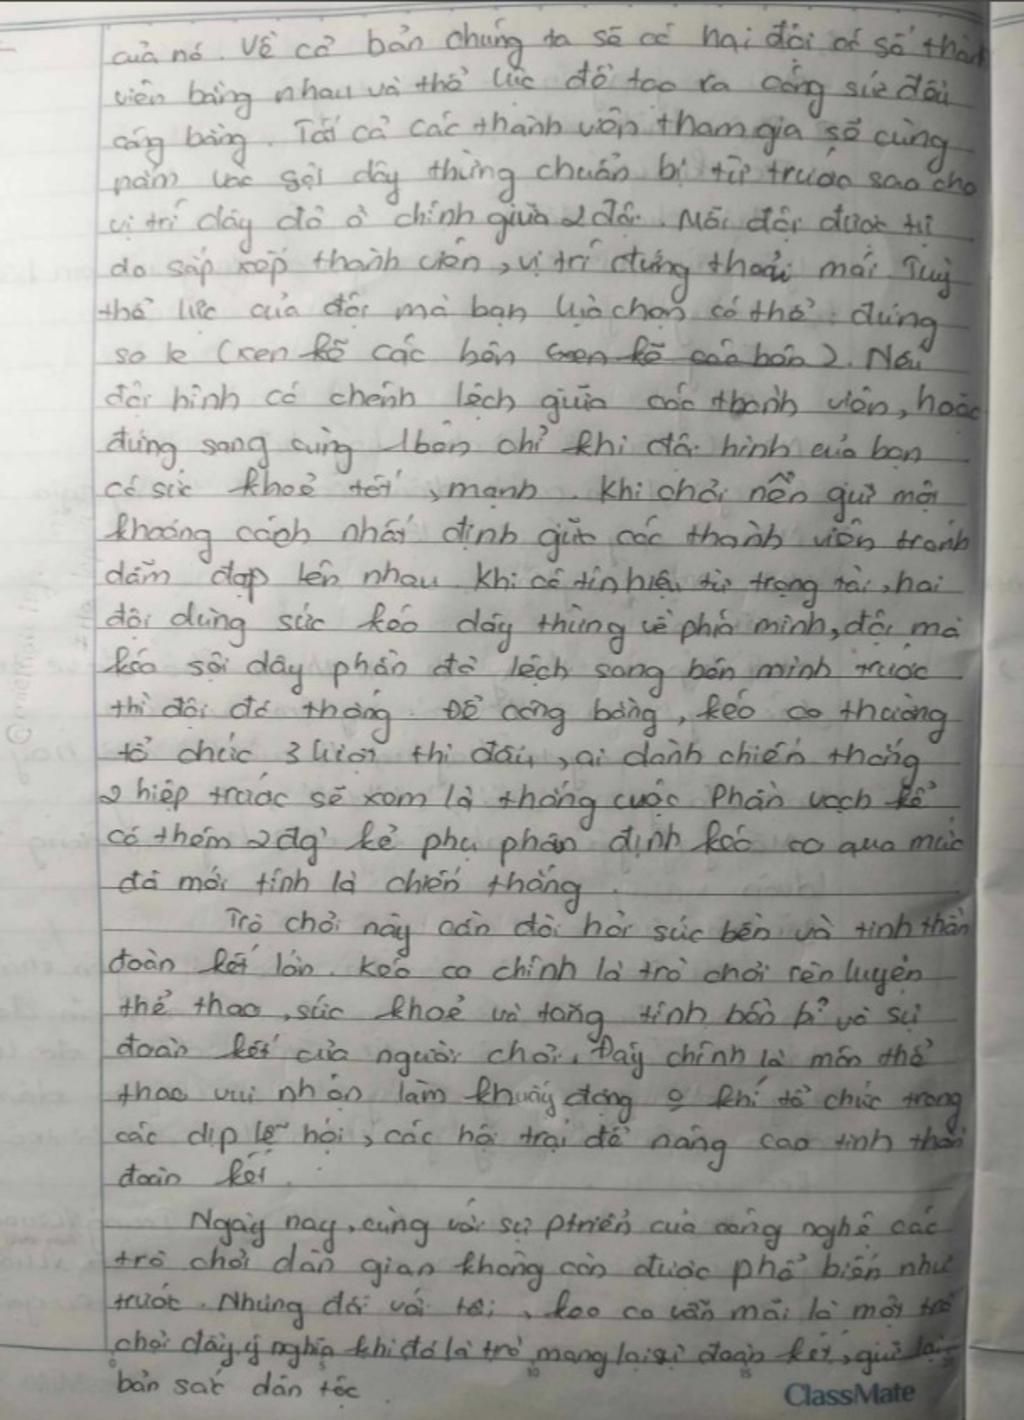 của nó. Về cơ bản chúng ta sẽ có hai đội có số thành
viên bằng nhau và thể lực để tạo ra công sức đấu
công bằng. Tất cả các thành viên tham gia sẽ cùng
nắm vào sợi dây thừng chuẩn bị từ trước sao cho
vị trí dây đỏ ở chính giữa 2 đội. Mỗi đội được tự
do sắp xếp thành viên, vị trí đứng thoải mái. Tuỳ
thể lực của đội mà bạn lựa chọn có thể: đứng
so le (xen kẽ các bên xen kẽ các bên). Nếu
đội hình có chênh lệch giữa các thành viên, hoặc
đứng sang cùng 1 bên chỉ khi đội hình của bạn
có sức khoẻ tốt, mạnh. Khi chơi nên giữ một
khoảng cách nhất định giữa các thành viên tránh
dẫm đạp lên nhau. Khi có tín hiệu từ trọng tài, hai
đội dùng sức kéo dây thừng về phía mình, đội mà
kéo sợi dây phần đỏ lệch sang bên mình trước
thì đội đó thắng. Để công bằng, kéo co thường
tổ chức 3 lượt thi đấu, ai dành chiến thắng
2 hiệp trước sẽ xem là thắng cuộc. Phần vạch kẻ
có thêm 2 đg kẻ phụ phân định kéo co qua mức
đó mới tính là chiến thắng.
Trò chơi này cần đòi hỏi sức bền và tinh thần
đoàn kết lớn. Kéo co chính là trò chơi rèn luyện
thể thao, sức khoẻ và tăng tính bền bỉ và sự
đoàn kết của người chơi. Đây chính là môn thể
thao vui nhộn làm khuấy động o khí tổ chức trong
các dịp lễ hội, các hội trại để nâng cao tinh thần
đoàn kết.
Ngày nay, cùng với sự ptriển của công nghệ các
trò chơi dân gian không còn được phổ biến như
trước. Nhưng đối với tôi, kéo co vẫn mãi là một trò
chơi đầy ý nghĩa khi đó là trò mang lại sự đoàn kết, giữ lại
bản sắc dân tộc.
ClassMate